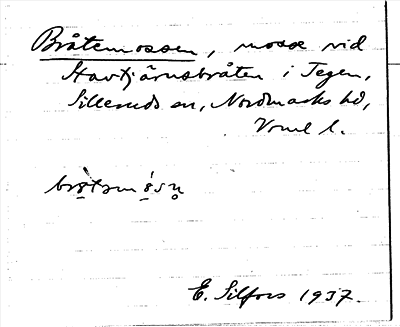 Bråtemossen, mosse vid
Stavtjärnsbråten i Tegen,
Sillerud sn, Nordmarks hd,
Vrml l.
E. Silfors 1937.